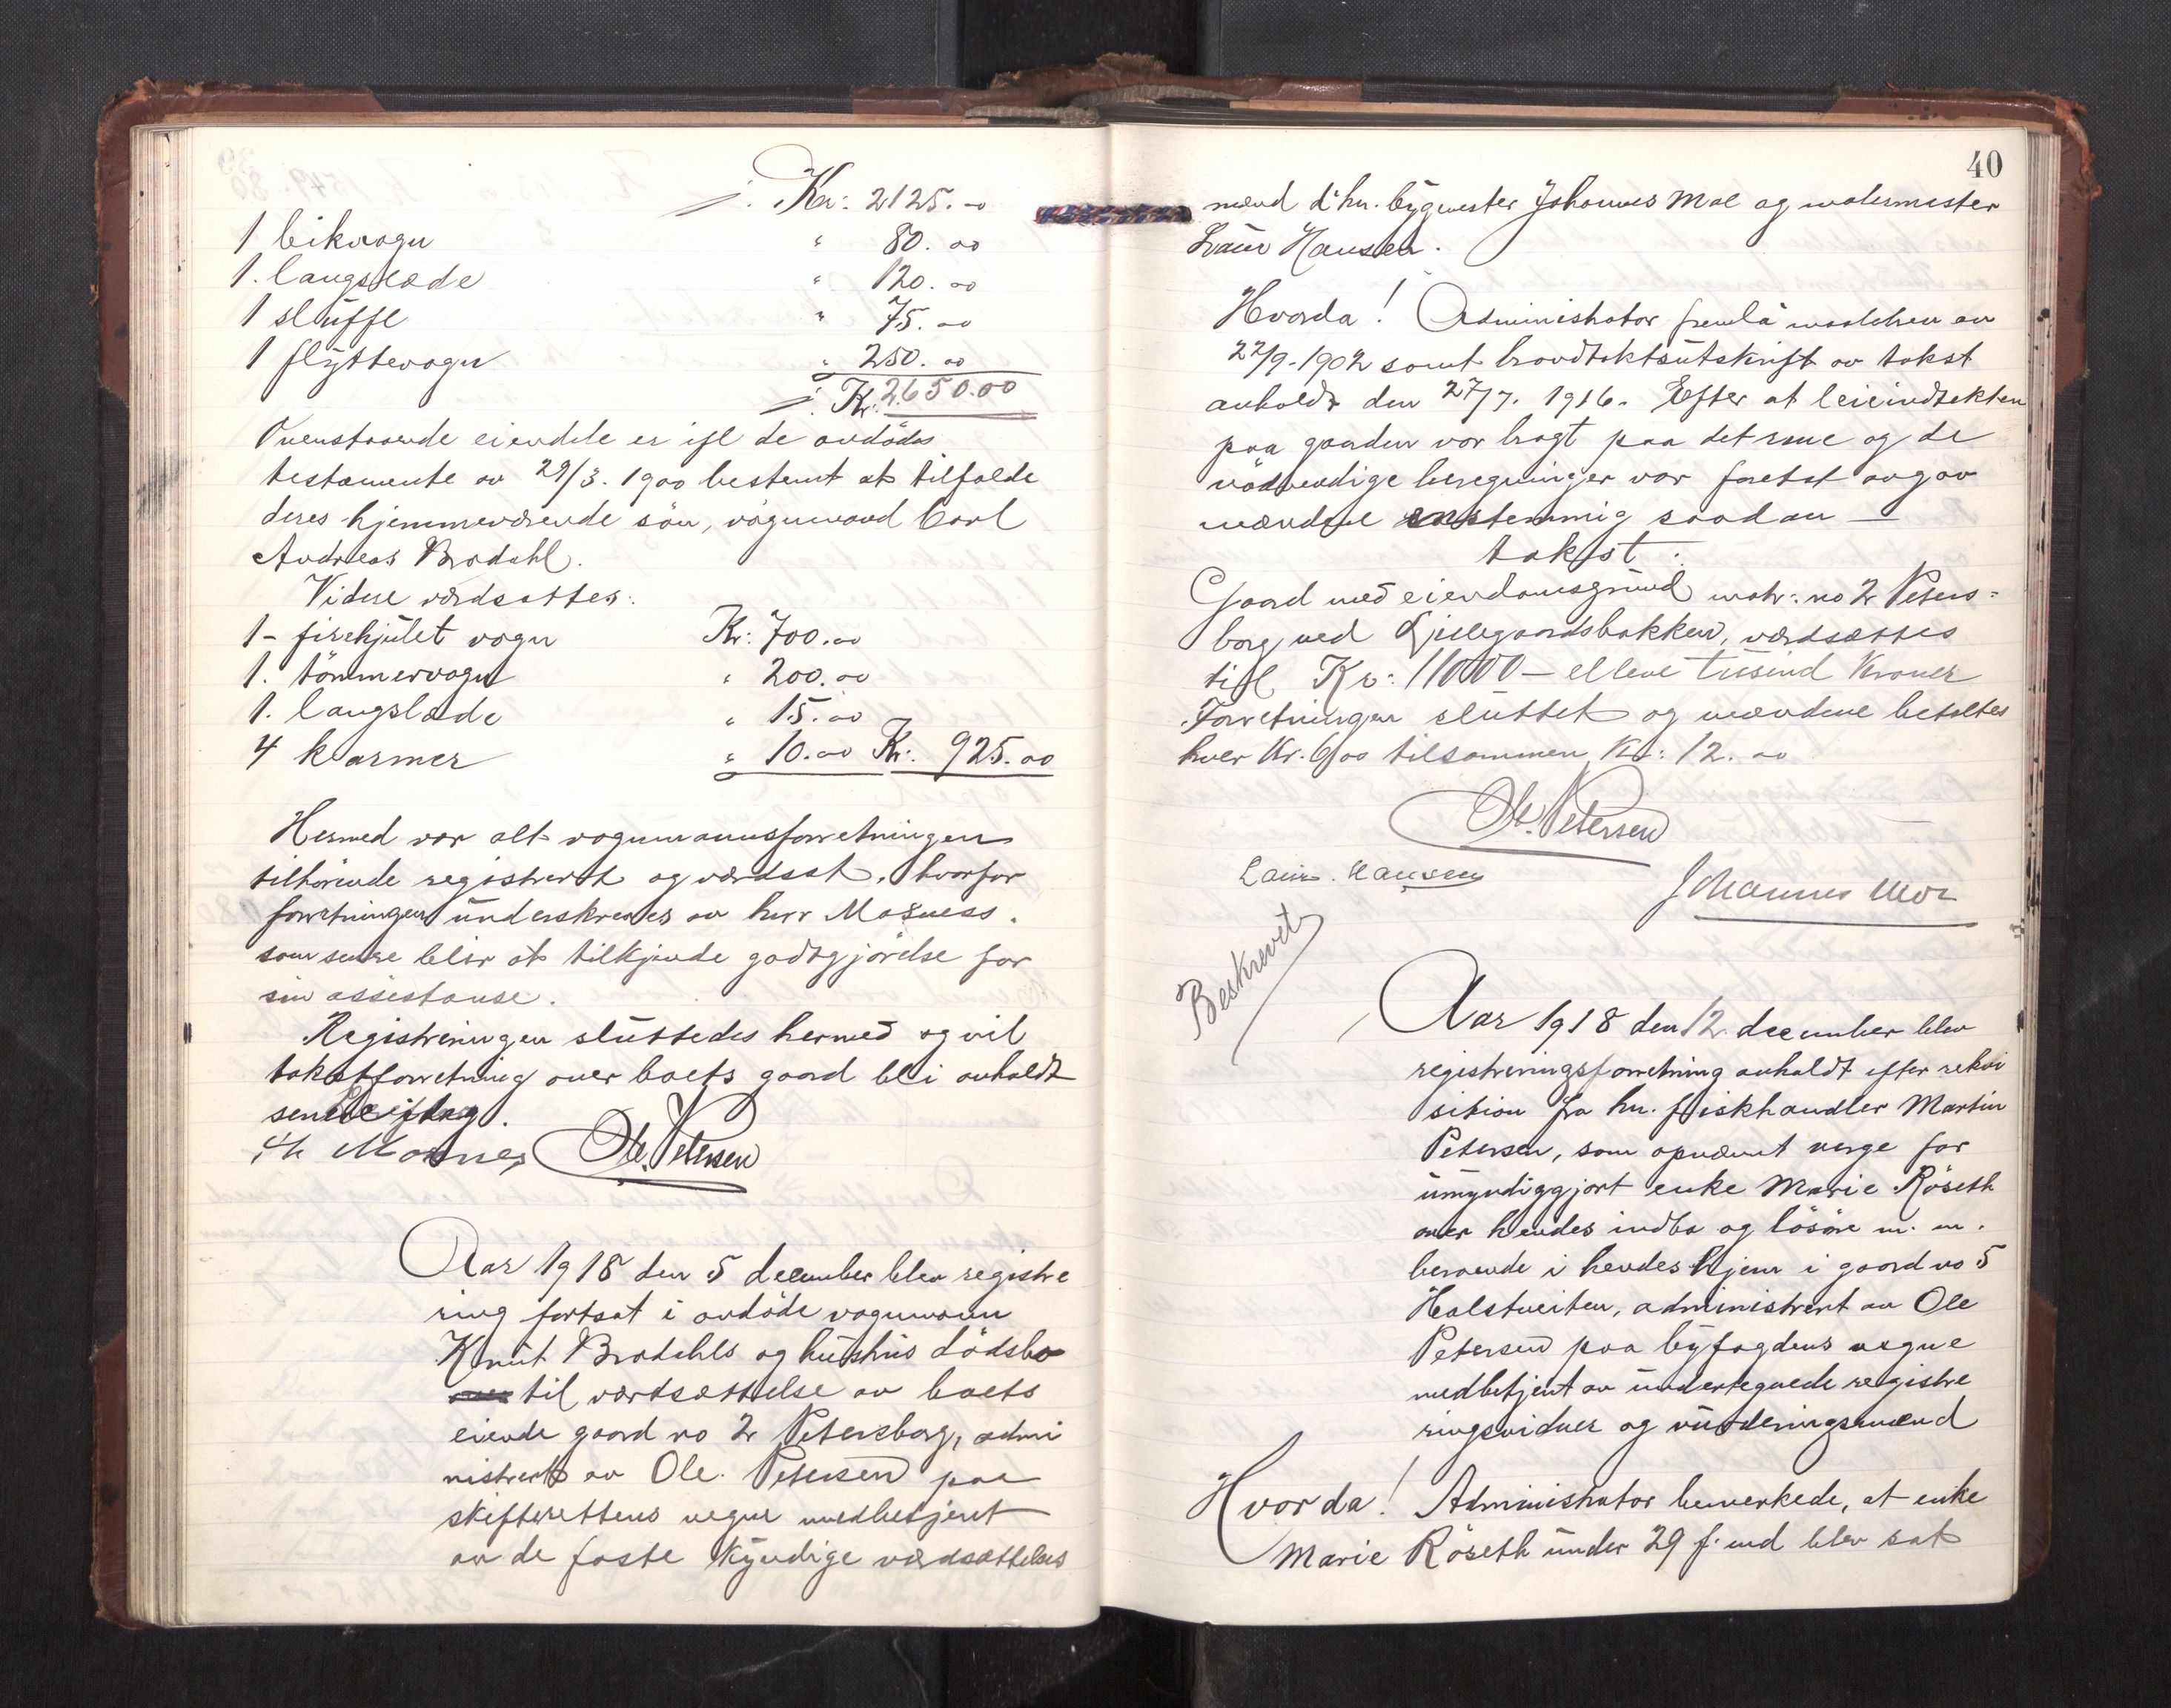 Kr: 2125.00
1 likvogn " 80.00
1. langslæde " 120.00
1 sluffe " 75.00
1 flyttevogn " 250.00
Kr: 2650.00
Ovenstaaende eiendele er ifl de avdødes
testamente av 29/3. 1900 bestemt at tilfalde
deres hjemmeværende søn, vognmand Carl
Andreas Brodahl.
Videre værdsattes:
1 - firehjulet vogn Kr: 700.00
1. tømmervogn " 200.00
1. langslæde " 15.00
4 karmer " 10.00 Kr: 925.00
Hermed var alt vognmannsforretningen
tilhørende registrert og værdsat, hvorfor
forretningen underskreves av herr Mosness.
som senere blir at tilkjende godtgjørelse for
sin assistanse.
Registreringen sluttedes hermed og vil
takstforretning over boets gaard bli avholdt
senere
Mosnes Ole Petersen
Aar 1918 den 5 december blev registre
ring fortsat i avdøde vognmann
Knut Brodahls og hustrus dødsbo
til værdsættelse av boets
eiende gaard no 2 Petersborg, admi
nistrert av Ole Petersen paa
skifterettens vegne medbetjent
av de faste kyndige værdsættelses
40
mænd d'hrr. bygmester Johannes Moe og malermester
Laur Hansen.
Hvorda! Administrator fremla maalebrev av
22/9-1902 samt brandtakstutskrift av takst
avholdt den 27/7. 1916. Efter at leieindtekten
paa gaarden var bragt paa det rene og de
nødvendige beregninger var foretat avgav
mændene enstemmig saadan —
takst.
Gaard med eiendomsgrund matr: no 2 Peters=
borg ved Ljellegaardsbakken, værdsættes
til Kr: 11000 — elleve tusind Kroner
Forretningen sluttet og mændene betaltes
hver Kr. 6.00 tilsammen Kr: 12.00
Ole Petersen
Laur. Hansen
Johannes Moe
Beskrevet
Aar 1918 den 12. december blev
registreringsforretning avholdt efter rekvi
sition fra hr. fiskhandler Martin
Petersen, som opnævnt verge for
umyndiggjort enke Marie Røseth
over hendes indbo og løsøre m. m.
beroende i hendes hjem i gaard no 5
Holstveiten, administrert av Ole
Petersen paa byfogdens vegne
medbetjent av undertegnede registre
ringsvidner og vurderingsmænd
Hvorda! Administrator bemerkede, at enke
Marie Røseth under 29 f. md blev sat